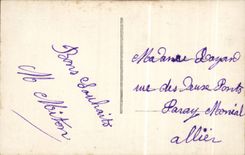 Bons Souhaits
M Miton
Madame Doyen
rue des deux Ponts
Paray Monial
allier